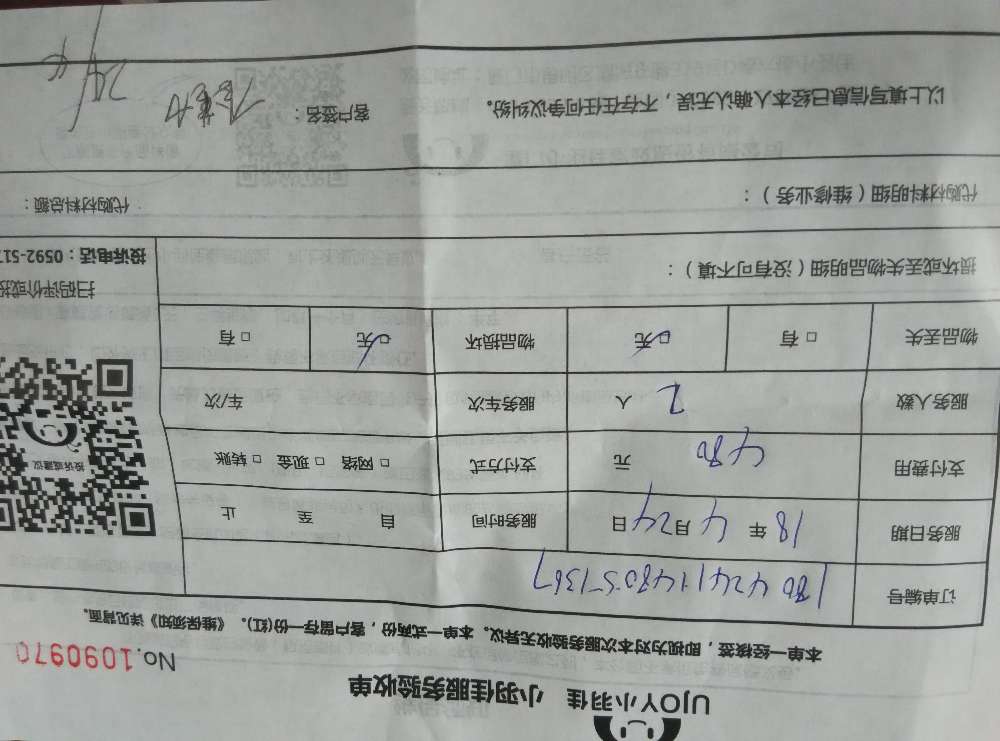 UJOY小羽佳 小羽佳服务验收单
No.1090970
本单一经核签，即视为对本次服务验收无异议。本单一式两份，客户留存一份(红)。《维保须知》详见背面。
订单编号
服务日期 18 年 4 月 24 日 服务时间 自 至 止
支付费用 480 元 支付方式 □ 网络 □ 现金 □ 转账
服务人数 2 人 服务车次 车/次
物品丢失 □ 有 □ 无 物品损坏 □ 无 □ 有
投诉或建议
扫码评价或投
投诉电话：0592-517
损坏或丢失物品明细（没有可不填）：
代购材料明细（维修业务）： 代购材料总额：
以上填写信息已经本人确认无误，不存在任何争议纠纷。 客户签名：